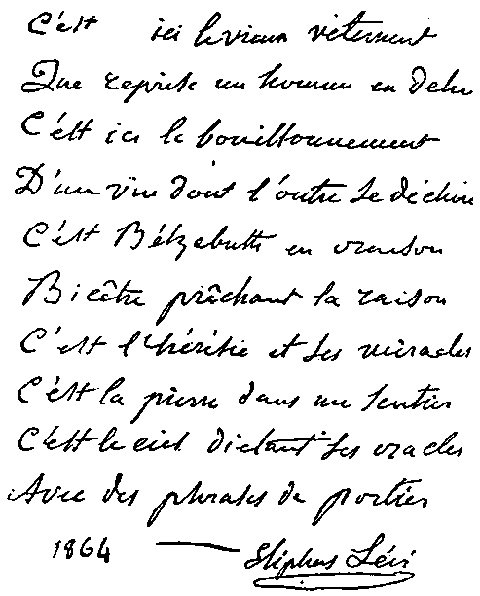 C'est ici le vieux vêtement
Que reprise un homme en délire
C'est ici le bouillonnement
D'un vin dont l'outre se déchire
C'est Bélzebuth en oraison
Bicêtre prêchant la raison
C'est l'hérésie et ses miracles
C'est la pierre dans un sentier
C'est le ciel dictant ses oracles
Avec des phrases de portier
1864 — Eliphas Lévi